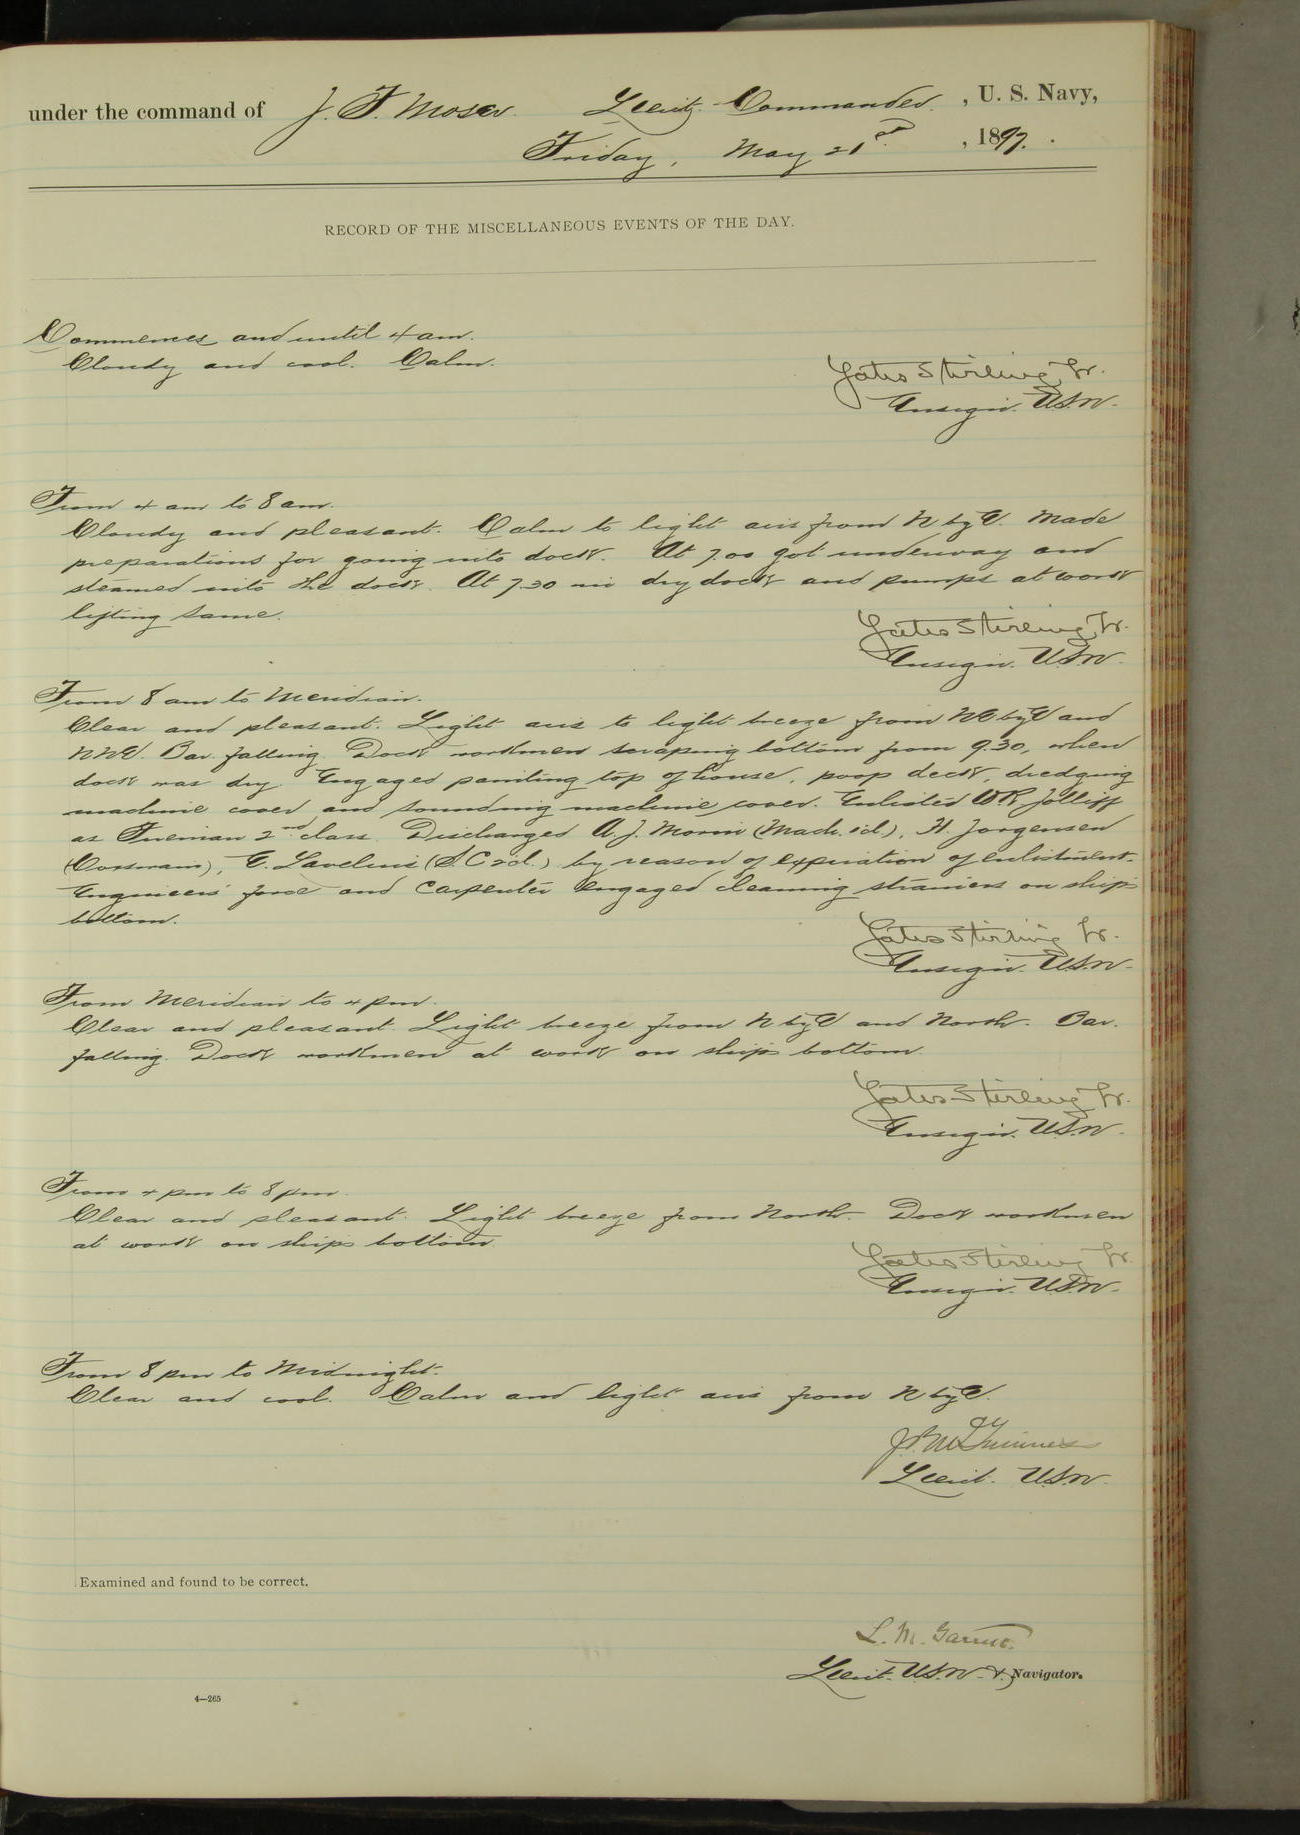 under the command of J. F. Moser Lieut. Commander, U. S. Navy,
Friday, May 21st, 1897.
RECORD OF THE MISCELLANEOUS EVENTS OF THE DAY.
Commences and until 4 am.
Cloudy and cool. Calm.
Yates Stirling Jr.
Ensign. U.S.N.
From 4 am to 8 am.
Cloudy and pleasant. Calm to light airs from N by E. Made
preparations for going into dock. At 7.00 got underway and
steamed into the dock. At 7.30 in dry dock and pumps at work
lifting same.
Yates Stirling, Jr.
Ensign. U.S.N.
From 8 am to Meridian.
Clear and pleasant. Light airs to light breeze from NE by E and
NNE. Bar. falling. Dock workmen scraping bottom from 9.30, when
dock was dry. Engaged painting top of house, poop deck, dredging
machine cover and sounding machine cover. Enlisted W R Jolliff
as Fireman 2nd class. Discharged A. J. Morin (Mach. 1cl.), H. Jorgensen
(Coxswain), E. (S.C 2cl.) by reason of expiration of enlistment.
Engineers' force and Carpenter engaged cleaning strainers on ship's
bottom.
Yates Stirling Jr.
Ensign. U.S.N.
From Meridian to 4 pm.
Clear and pleasant. Light breeze from N by E and North. Bar.
falling. Dock workmen at work on ship's bottom.
Yates Stirling Jr.
Ensign. U.S.N.
From 4 pm to 8 pm.
Clear and pleasant. Light breeze from North. Dock workmen
at work on ship's bottom
Yates Stirling Jr.
Ensign. U.S.N.
From 8 pm to Midnight.
Clear and cool. Calm and light airs from N by E.
Lieut. U.S.N.
Examined and found to be correct.
L. M. Garrett.
Lieut. U.S.N. & Navigator.
4—265